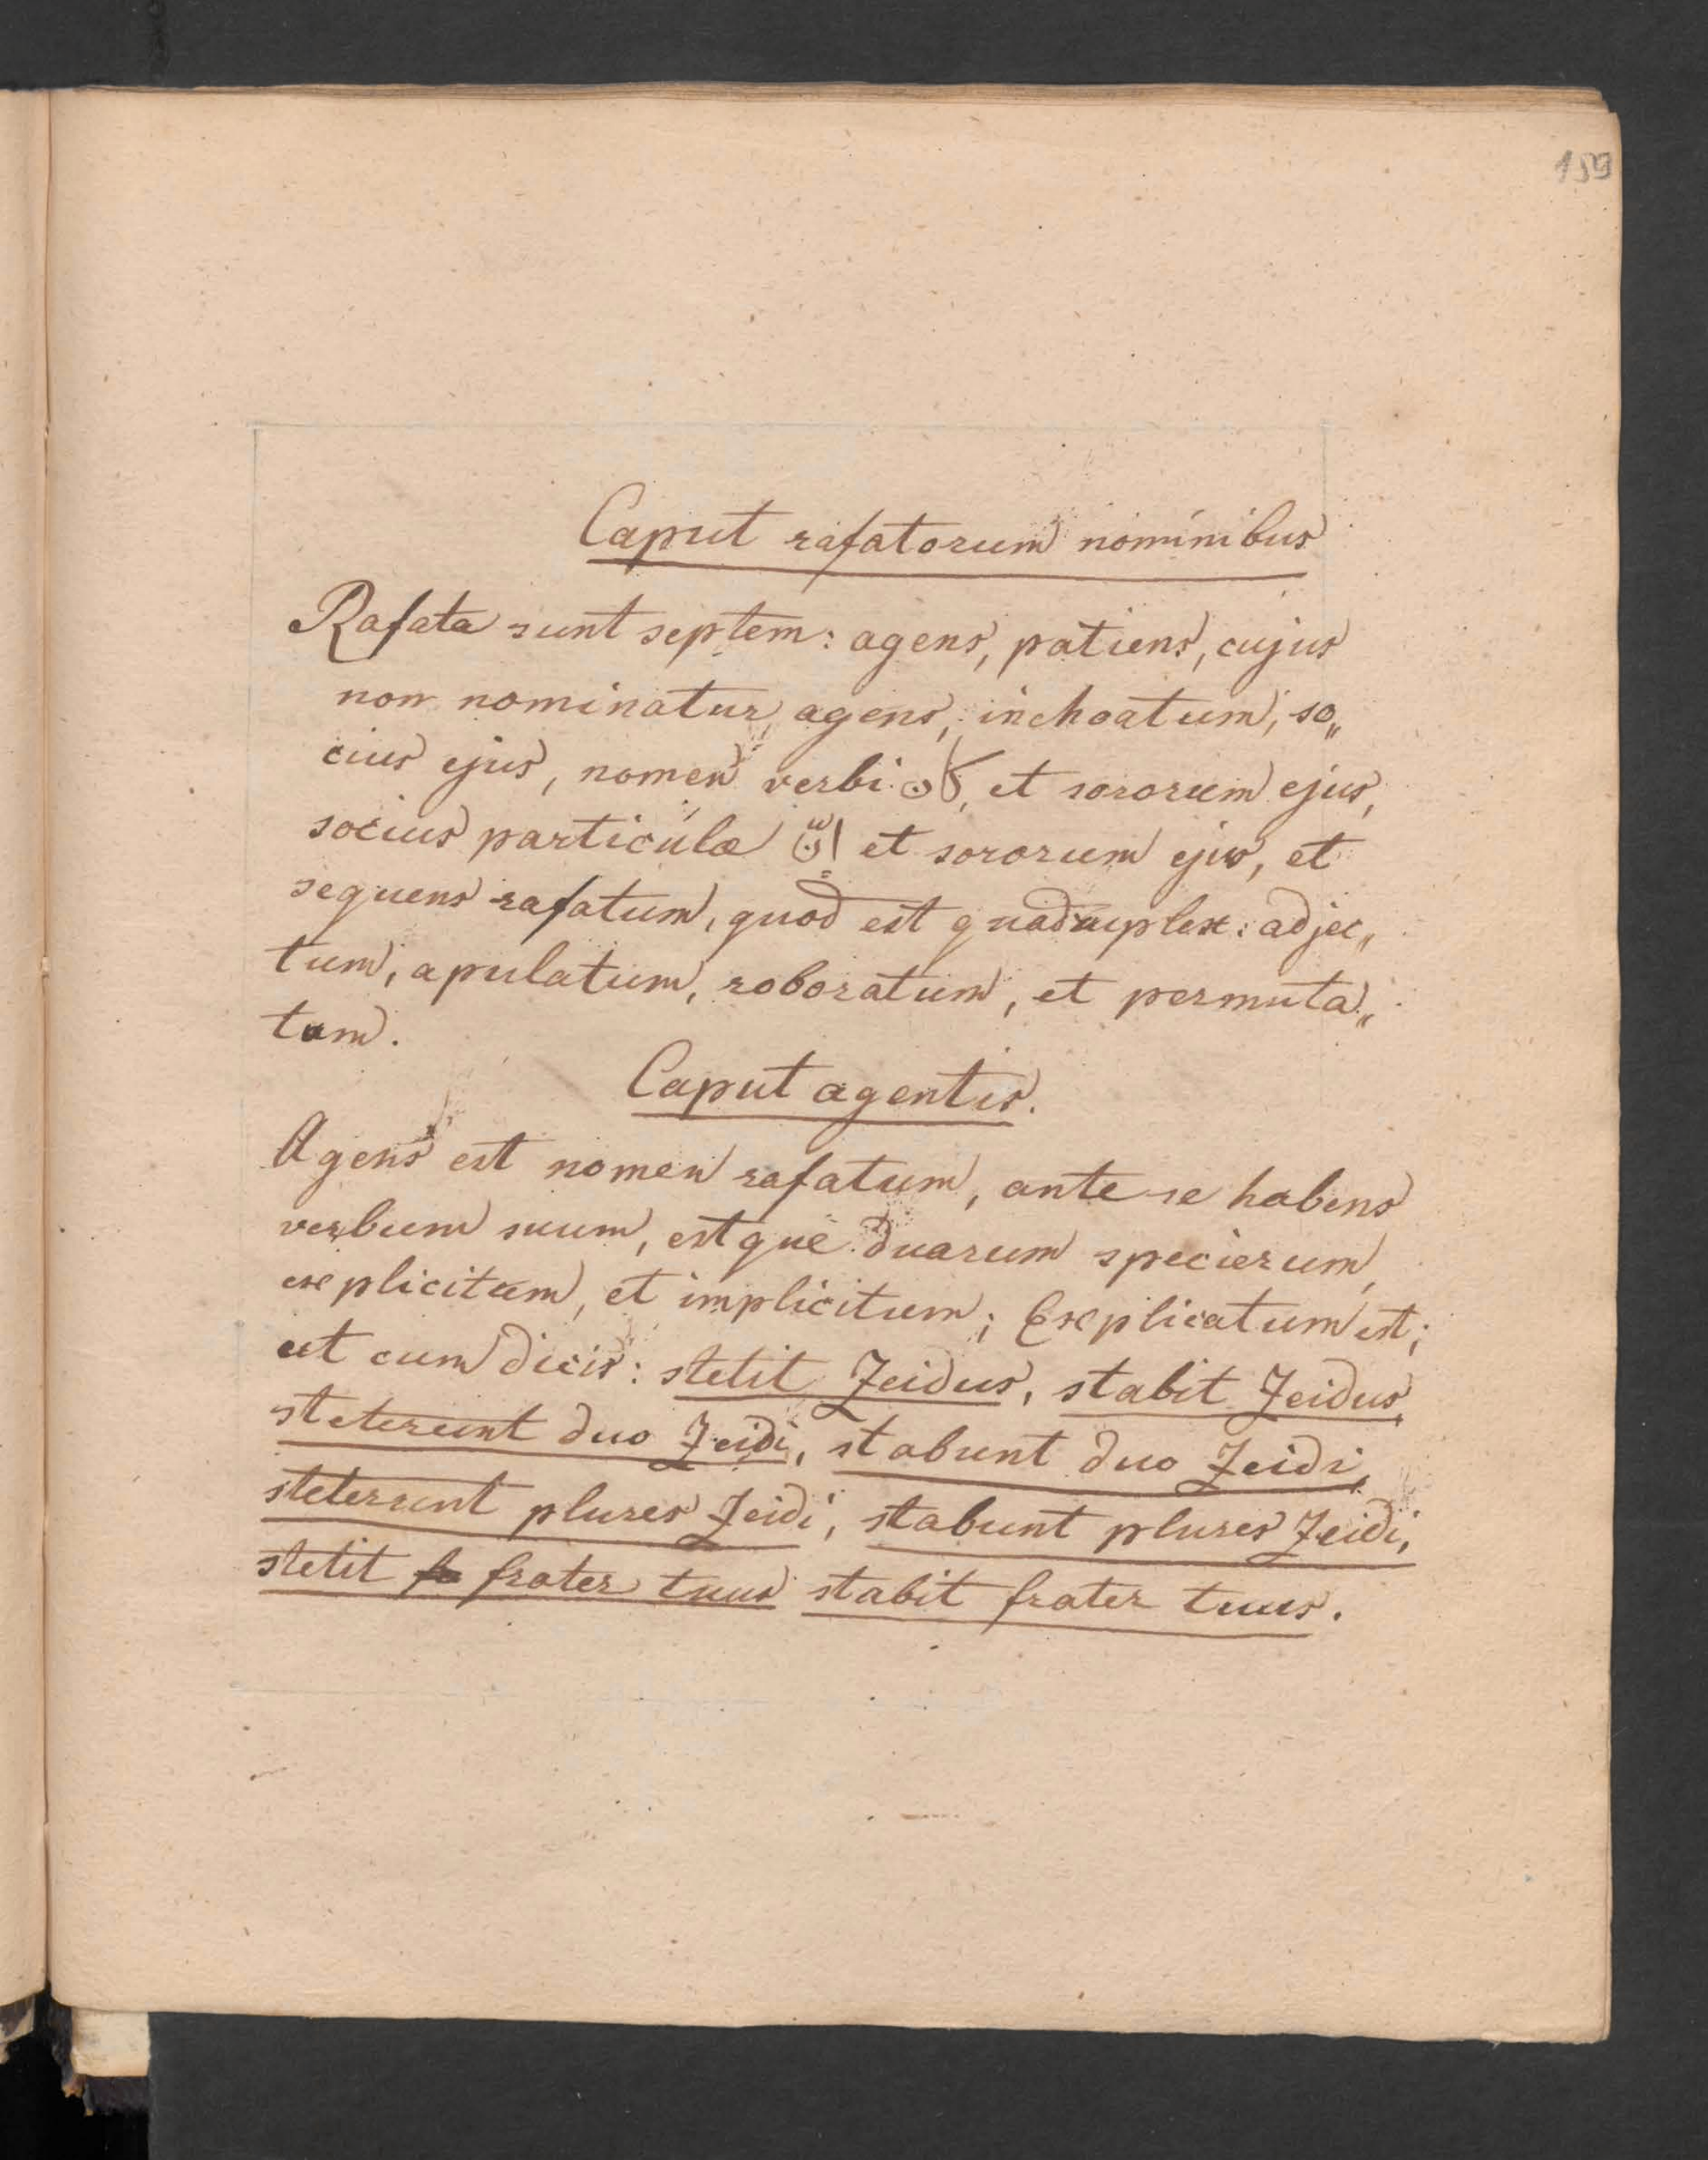 159
Caput rafatorum nominibus
Rafata sunt septem: agens, patiens, cujus
non nominatur agens, inchoatum, so„
cius ejus, nomen verbi كان, et sororum ejus,
socius particulæ اِنَّ et sororum ejus, et
sequens rafatum, quod est quadruplex: adjec„
tum, apulatum, roboratum, et permuta„
tum.
Caput agentis.
Agens est nomen rafatum, ante se habens
verbum suum, estque duarum specierum,
explicitum, et implicitum; Explicatum est;
ut cum dicis: stetit Zeidus, stabit Zeidus,
steterunt duo Zeidi, stabunt duo Zeidi,
steterunt plures Zeidi, stabunt plures Zeidi,
stetit frater tuus stabit frater tuus.